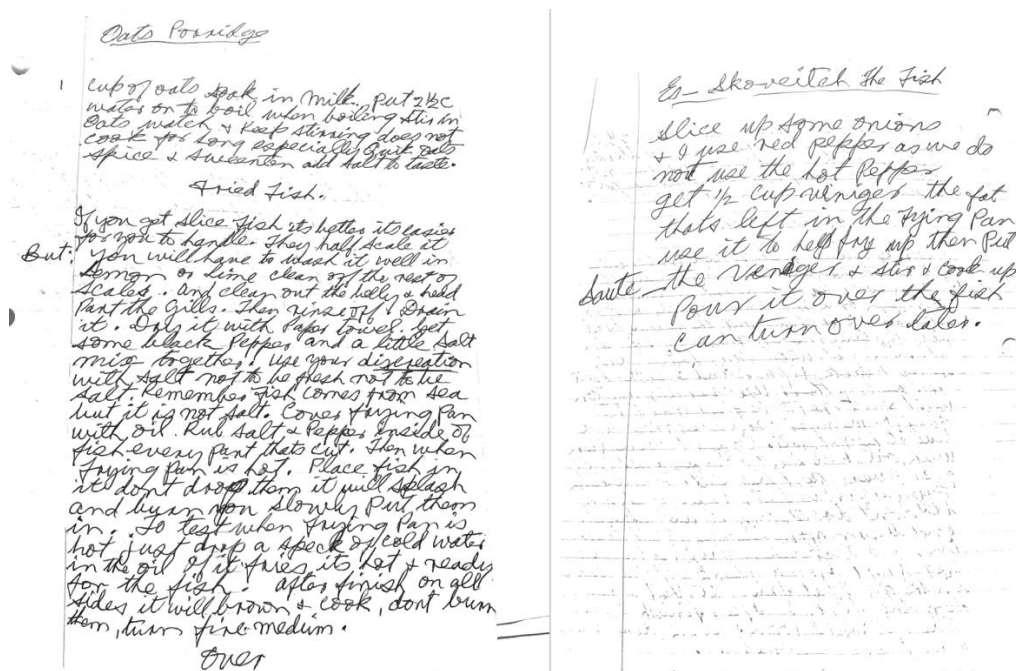 Oats Porridge
1 cup of oats soak in milk. Put 2½ c
water on to boil when boiling stir in
Oats, watch & keep stirring does not
cook for long especially Quik oats
spice & sweenten add salt to taste.
Fried Fish.
If you get slice fish its better its easier
for you to handle. They half scale it
But: you will have to wash it well in
Lemon or Lime clean off the rest of
Scales. and clean out the belly & head
Part the Gills. Then rinse off & Drain
it. Dry it with Paper towel. Get
some black Pepper and a little salt
mix together. use your discreation
with salt not to be fresh not to be
salt. Remember fish comes from sea
but it is not salt. Cover frying Pan
with oil. Rub salt & Pepper inside of
fish every part thats cut. Then when
frying pan is hot. Place fish in
it dont drop them it will splash
and burn you slowly Put them
in. To test when frying Pan is
hot just drop a speck of cold water
in the oil if it fries its hot & ready
for the fish. after finish on all
sides it will brown & cook, dont burn
them, turn fire medium.
Over
Es- Skoveitch The Fish
Slice up some onions
& I use red pepper as we do
not use the hot Pepper
get ½ cup viniger the fat
thats left in the frying Pan
use it to help fry up then Put
Saute the Viniger & stir & cook up
Pour it over the fish
can turn over later.